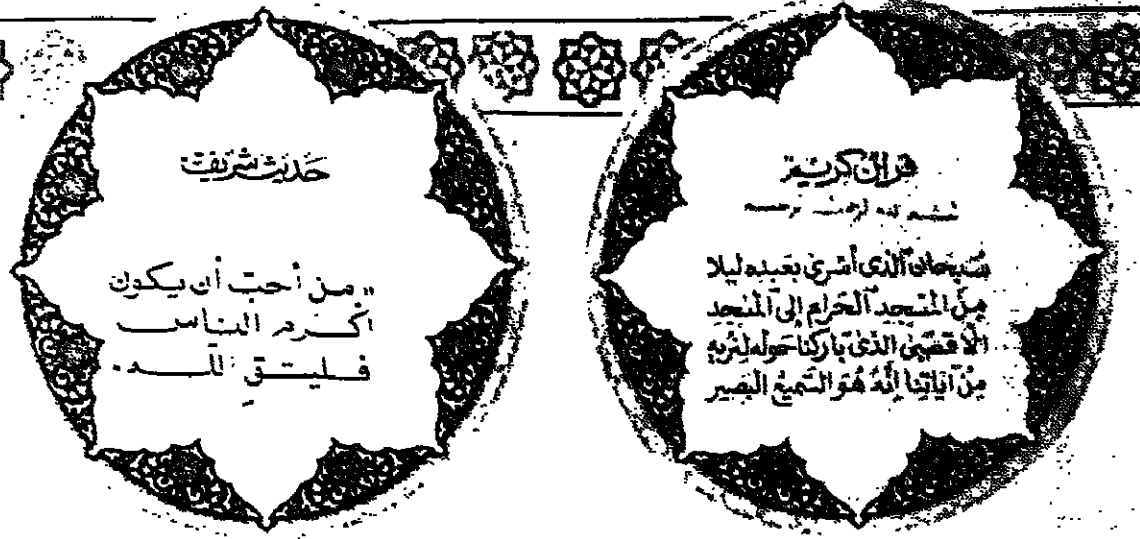 قرآن كريم
بسم الله الرحمن الرحيم
سبحان الذى أسرى بعبده ليلا
من المسجد الحرام إلى المسجد
الأقصى الذى باركنا حوله لنريه
من آياتنا إنه هو السميع البصير
حديث شريف
« من أحب أن يكون
أكرم الناس
فليتق الله .